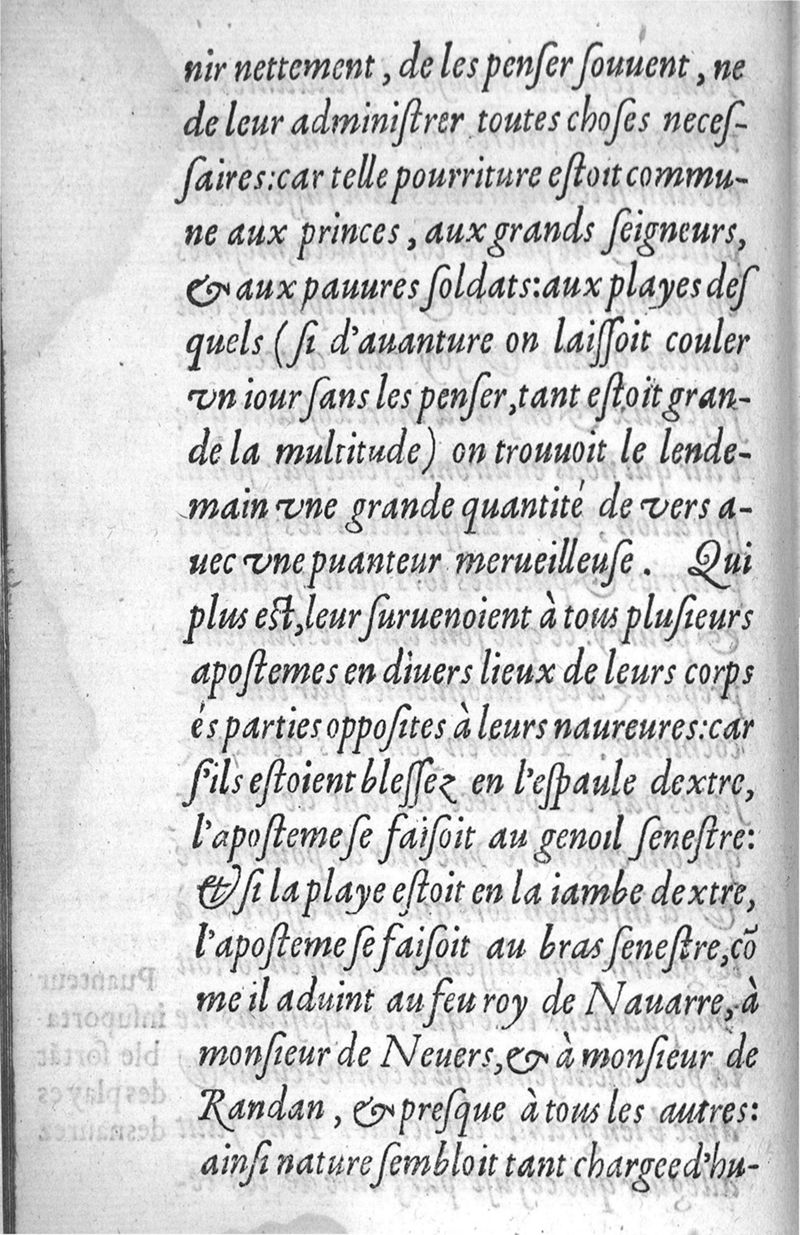 nir nettement, de les penſer ſouuent, ne
de leur adminiſtrer toutes choſes neceſ-
ſaires:car telle pourriture eſtoit commu-
ne aux princes, aux grands ſeigneurs,
& aux pauures ſoldats:aux playes deſ
quels (ſi d'auanture on laiſſoit couler
vn iour ſans les penſer,tant eſtoit gran-
de la multitude) on trouuoit le lende-
main vne grande quantité de vers a-
uec vne puanteur merueilleuſe. Qui
plus eſt,leur ſuruenoient à tous pluſieurs
apoſtemes en diuers lieux de leurs corps
és parties oppoſites à leurs naureures:car
ſ'ils eſtoient bleſſez en l'eſpaule dextre,
l'apoſteme ſe faiſoit au genoil ſeneſtre:
& ſi la playe eſtoit en la iambe dextre,
l'apoſteme ſe faiſoit au bras ſeneſtre,cõ
me il aduint au feu roy de Nauarre, à
monſieur de Neuers,& à monſieur de
Randan, & preſque à tous les autres:
ainſi nature ſembloit tant chargee d'hu-